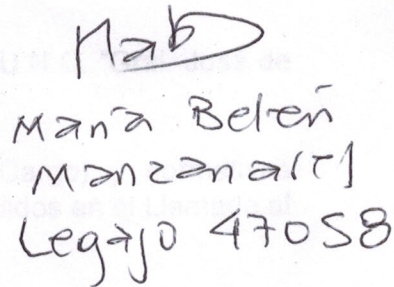 MabD
María Belén
Manzanares
Legajo 47058